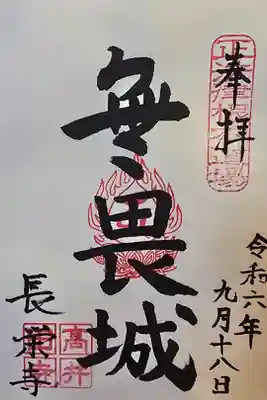 奉拝
令和六年
九月十八日
無畏城
長栄寺